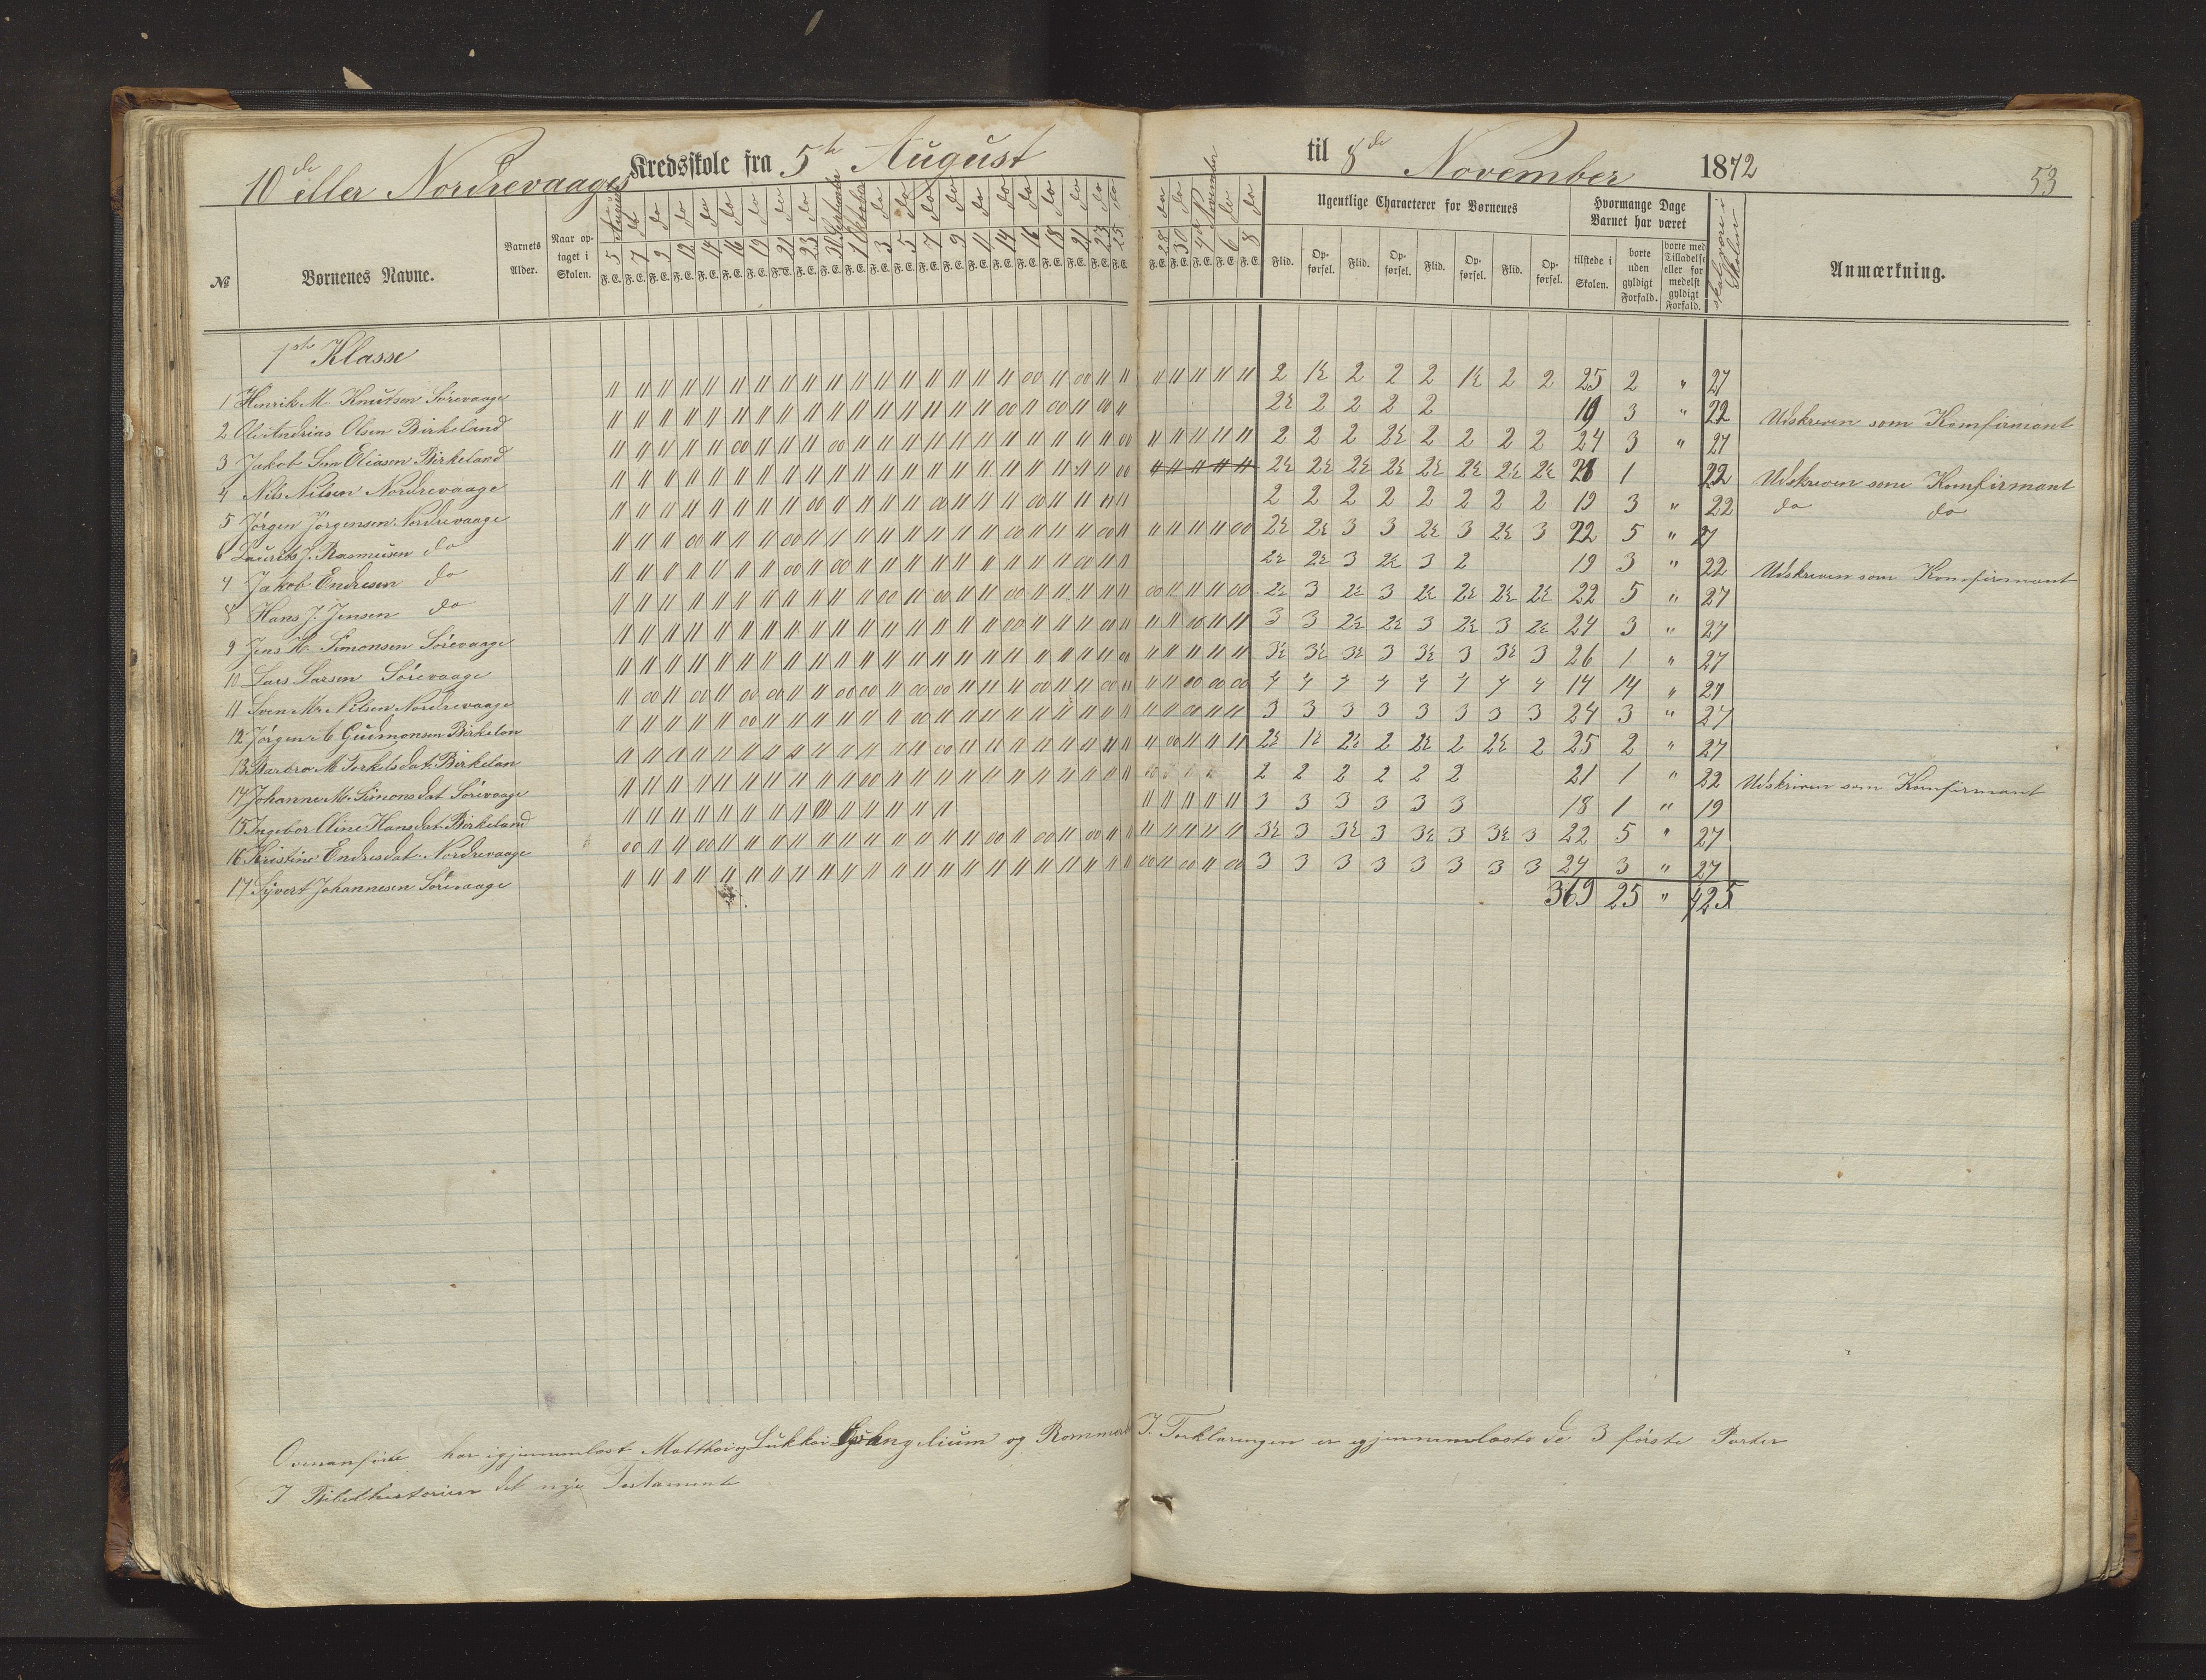 10de eller Nordrevaages Kredsskole fra 5te August til 8de November 1872
53
No Børnenes Navne. Barnets Alder. Naar optaget i Skolen. Ugentlige Characterer for Børnenes Hvormange Dage Barnet har været Anmærkning.
5 August 7 do 9 do 12 do 14 do 16 do 19 do 21 do 23 do 1 October 3 do 5 do 7 do 9 do 11 do 14 do 16 do 18 do 21 do 23 do 25 do 28 do 30 do 4 November 6 do 8 do
F. E.
Flid. Opførsel. Flid. Opførsel. Flid. Opførsel. Flid. Opførsel. tilstede i Skolen. borte uden gyldigt Forfald. borte med Tilladelse eller formedelst gyldigt Forfald. skal være i Skolen
1ste Klasse
1 Henrik M. Knutsen Sørevaage 2 1½ 2 2 2 1½ 2 2 25 2 " 27
2 Ole Andrias Olsen Birkeland 2½ 2 2 2 2 19 3 " 22 Udskreven som Komfirmant
3 Jakob Eliasen Birkeland 2 2 2 2½ 2 2 2 2 24 3 " 27
4 Nils Nilsen Nordrevaage 2½ 2½ 2½ 2½ 2½ 2½ 2½ 2½ 1 22 Udskreven som Komfirmant
5 Jørgen Jørgensen Nordrevaage 2 2 2 2 2 2 2 2 19 3 " 22 do do
6 Laurits J. Rasmusen do 2½ 2½ 3 3 2½ 3 2½ 3 22 5 " 27
7 Jakob Endresen do 2½ 2½ 3 2½ 3 2 19 3 " 22 Udskreven som Komfirmant
8 Hans J. Jensen do 2½ 3 2½ 3 2½ 2½ 2½ 2½ 22 5 " 27
9 Jens K. Simonsen Sørevaage 3 3 2½ 2½ 3 2½ 3 2½ 24 3 " 27
10 Lars Larsen Sørevaage 3½ 3½ 3½ 3 3½ 3 3½ 3 26 1 " 27
11 Sven M. Nilsen Nordrevaage 4 4 4 4 4 4 4 4 14 14 " 27
12 Jørgen A Gudmonsen Birkelan 3 3 3 3 3 3 3 3 24 3 " 27
13 Barbro M Torkelsdat. Birkelan 2½ 1½ 2½ 2 2½ 2 2½ 2 25 2 " 27
14 Johanne M. Simonsdat Sørevaage 2 2 2 2 2 2 21 1 " 22 Udskriven som Komfirmant
15 Ingebor Oline Hansdat. Birkeland 3 3 3 3 3 3 18 1 " 19
16 Kristine Endresdat. Nordrevaage 3½ 3 3½ 3 3½ 3 3½ 3 22 5 " 27
17 Syvert Johannesen Sørevaage 3 3 3 3 3 3 3 3 24 3 " 27
369 25 " 425
Ovenanførte har igjennemlæst Matthæi og Lukkæi Evangelium og Rommer I. Forklaringen er igjennemlæste de 3 første Parter
I Bibelhistorien det nye Testamente